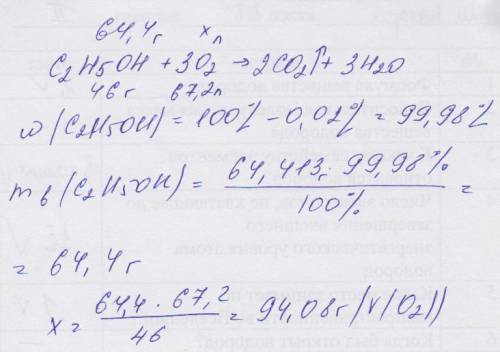 64,4г xл
C2H5OH + 3O2 → 2CO2↑ + 3H2O
46г 67,2л
ω(C2H5OH) = 100% - 0,02% = 99,98%
m в (C2H5OH) = 64,413 · 99,98% / 100% =
= 64,4г
x = 64,4 · 67,2 / 46 = 94,08г (V(O2))